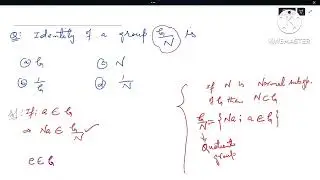 Q: Identity of a group G/N is
(a) G (c) N
(b) 1/G (d) 1/N
If; a ∈ G
⇒ Na ∈ G/N ✓
e ∈ G
If N is Normal subgp.
of G then N ⊂ G
G/N = {Na ; a ∈ G}
↓
Quotient
group
KINEMASTER